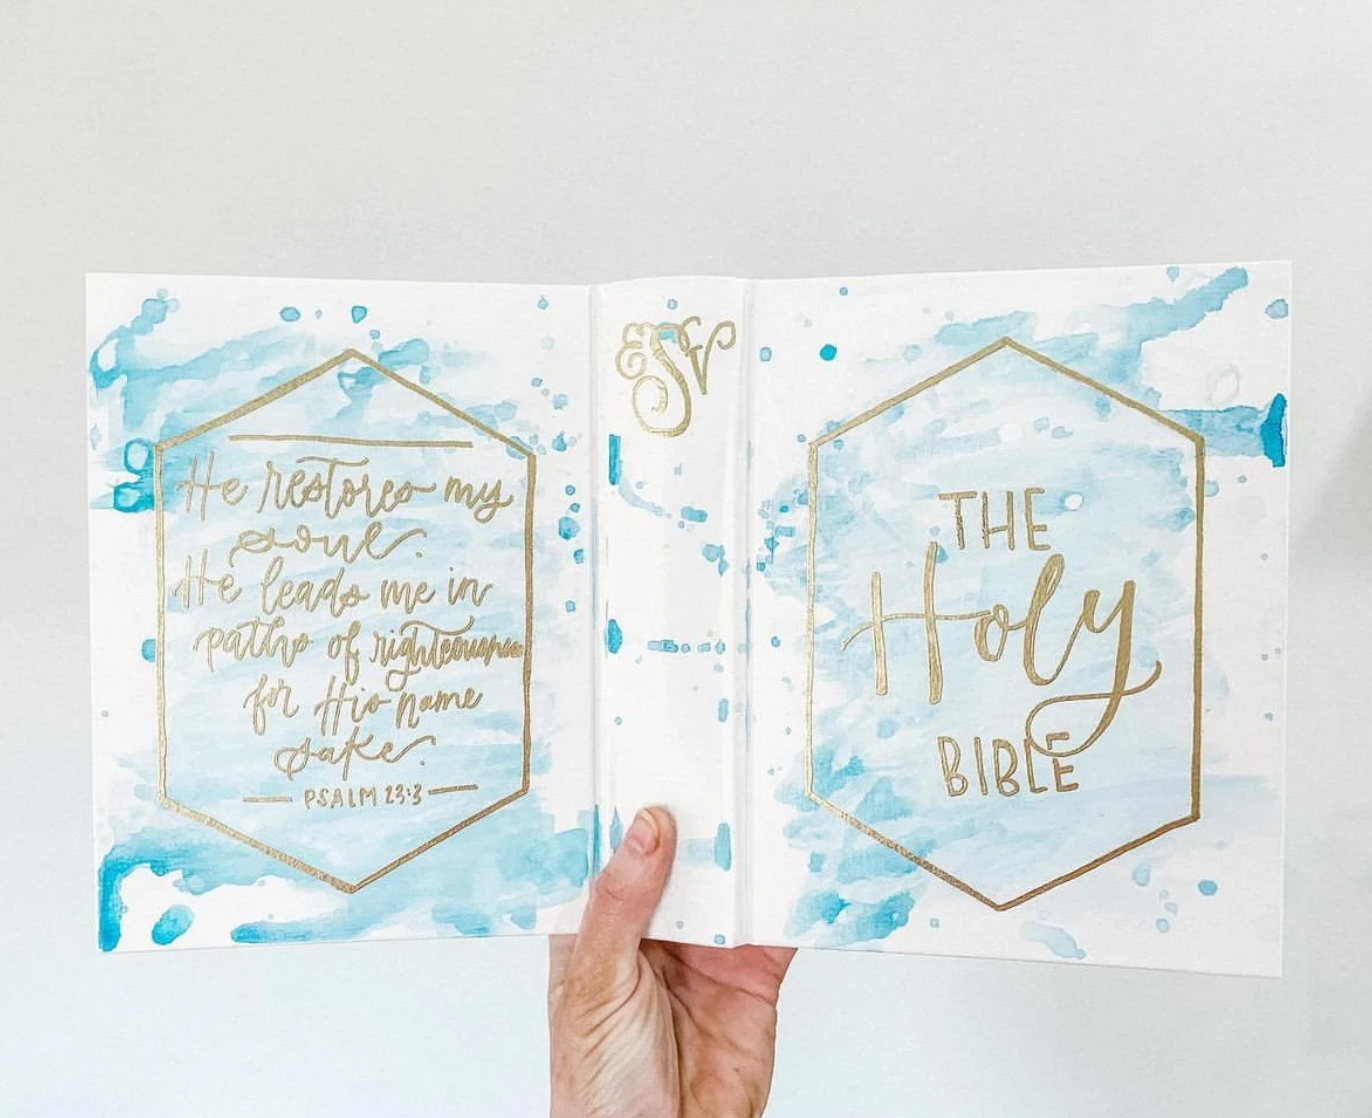 He restores my
soul.
He leads me in
paths of righteousness
for His name
sake.
PSALM 23:3
ESV
THE
Holy
BIBLE